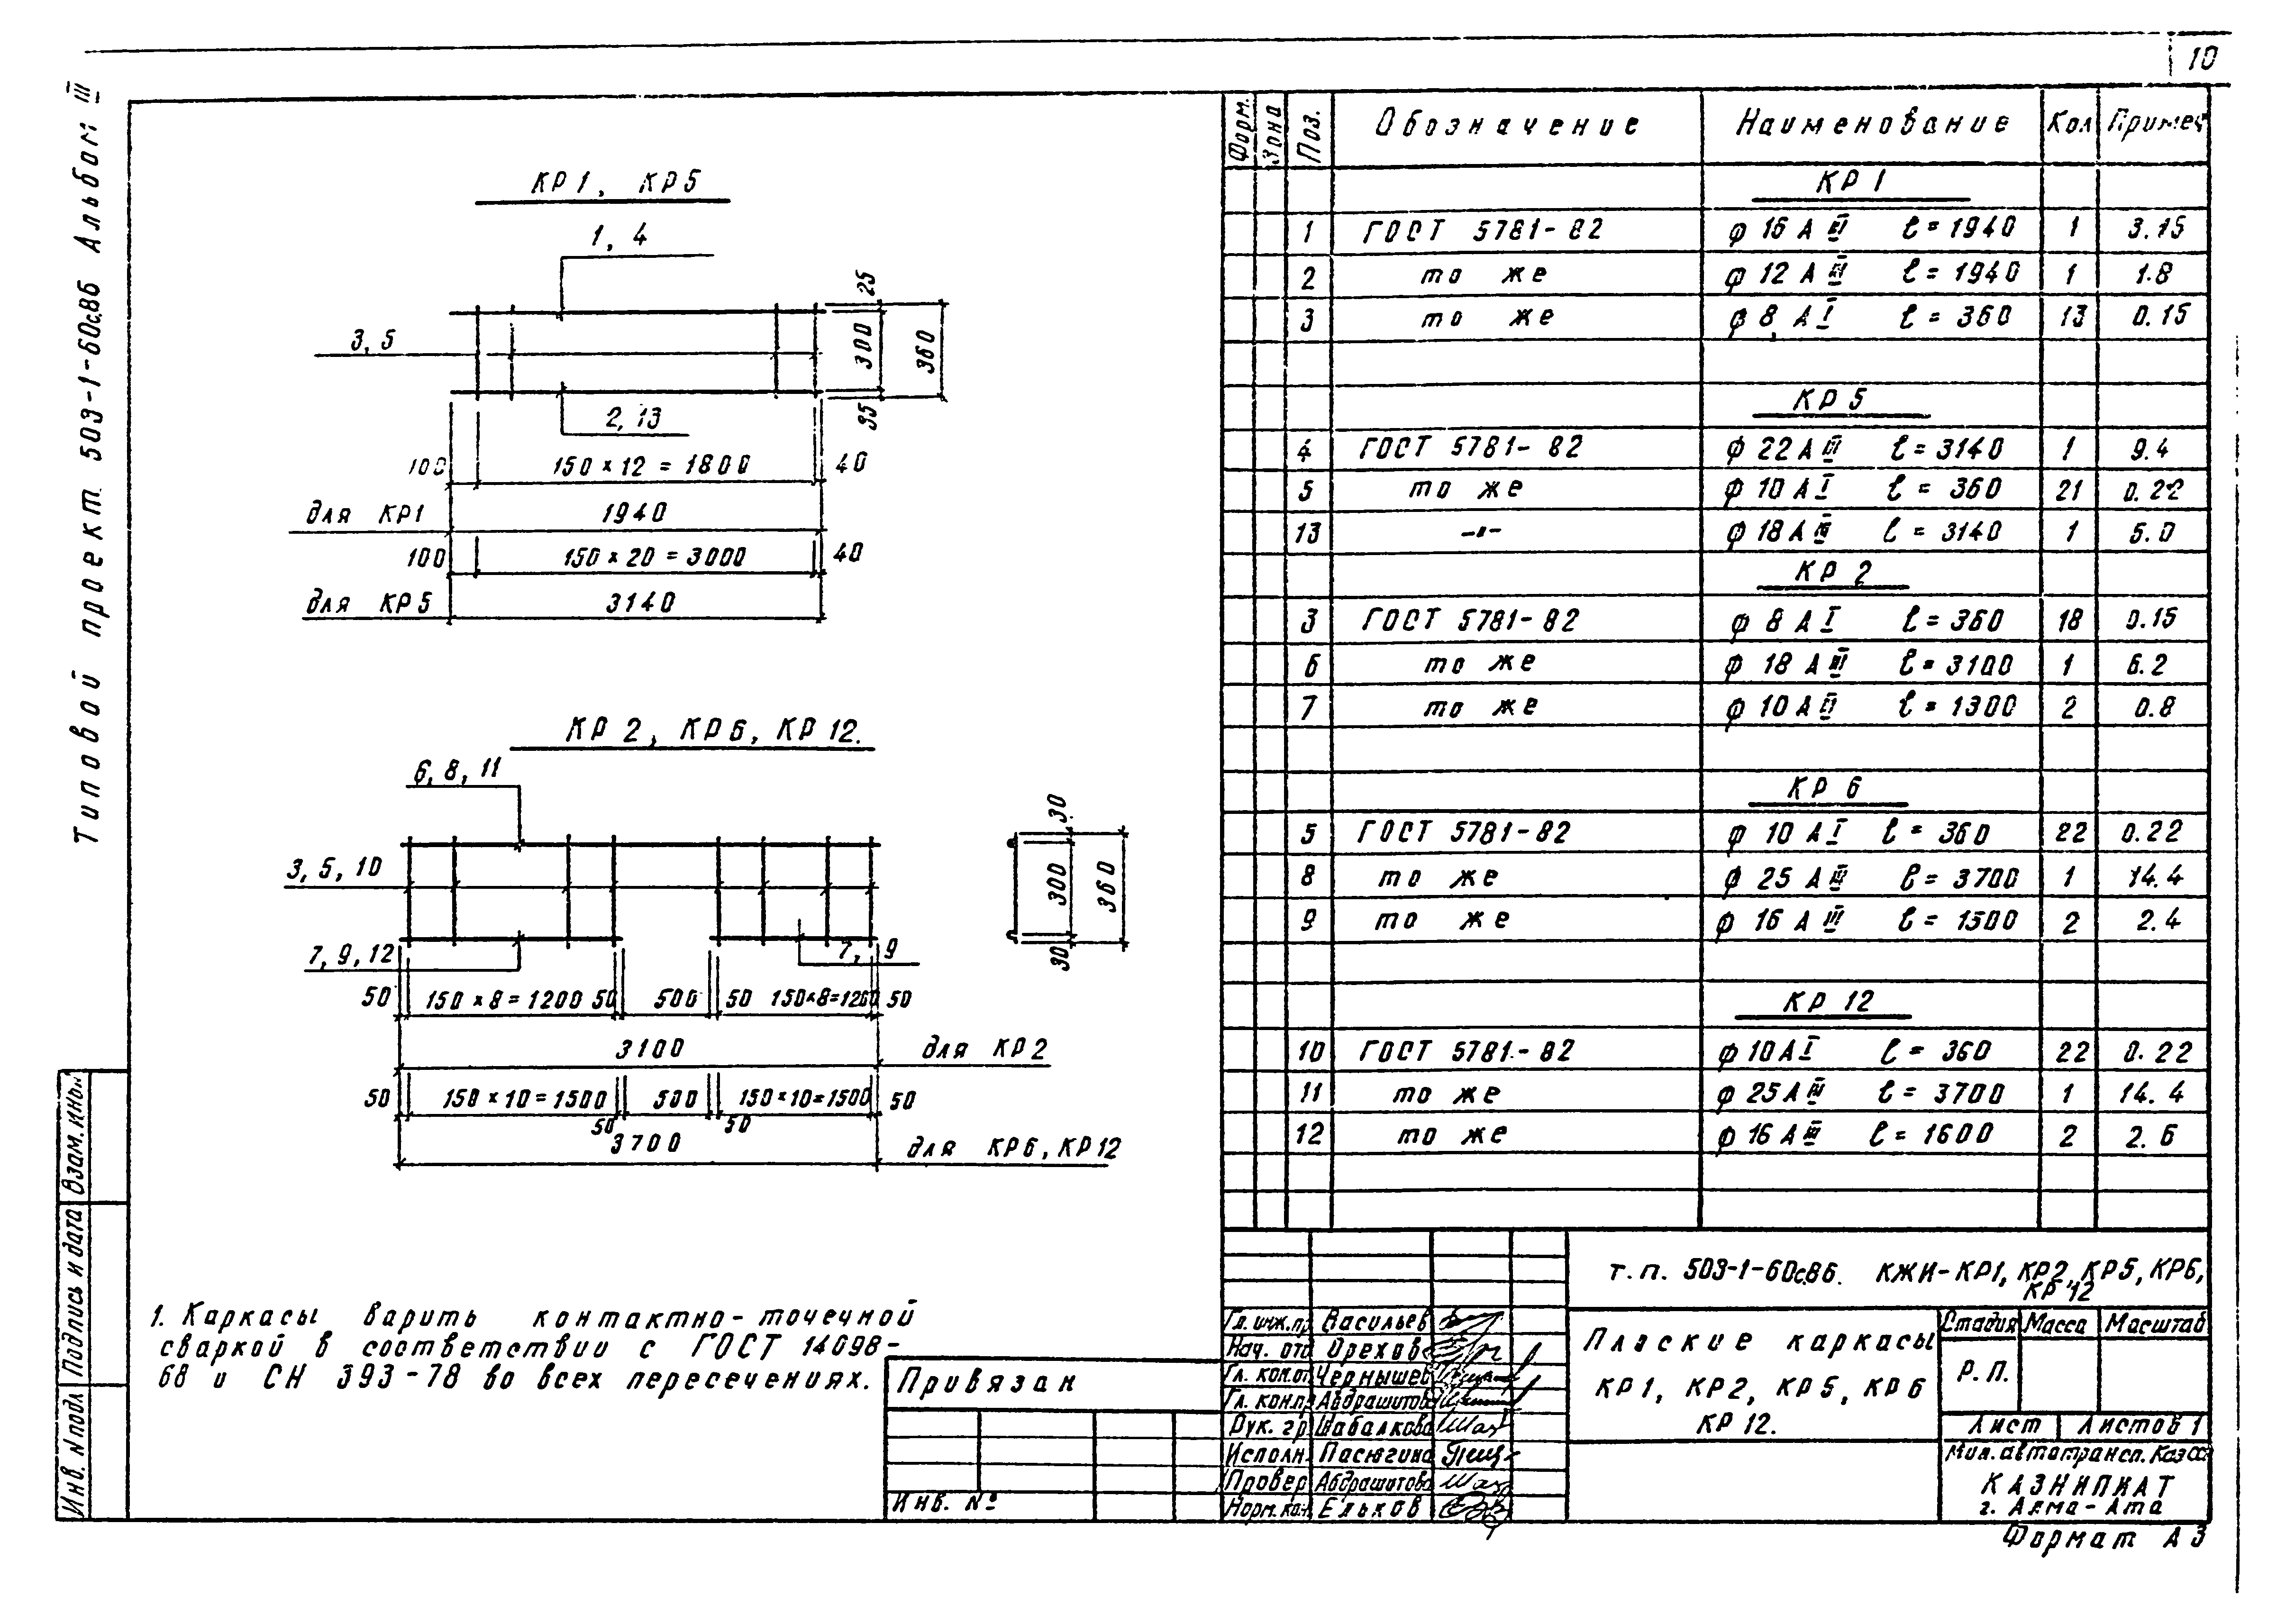 10
Типовой проект 503-1-60с.86 Альбом III
КР1, КР5
1, 4
3, 5
2, 13
25
300
35
360
100
150 × 12 = 1800
40
для КР1
1940
100
150 × 20 = 3000
40
для КР5
3140
КР 2, КР6, КР 12.
6, 8, 11
3, 5, 10
7, 9, 12
7, 9
30
300
30
360
50
150 × 8 = 1200
50
500
50
150×8=1200
50
3100
для КР2
50
150 × 10 = 1500
50
500
50
150×10=1500
50
3700
для КР6, КР12
1. Каркасы варить контактно-точечной
сваркой в соответствии с ГОСТ 14098-
68 и СН 393-78 во всех пересечениях.
Форм. Зона Поз. Обозначение Наименование Кол Примеч
КР 1
1 ГОСТ 5781-82 φ 16 А III ℓ = 1940 1 3.15
2 то же φ 12 А III ℓ = 1940 1 1.8
3 то же φ 8 А I ℓ = 360 13 0.15
КР 5
4 ГОСТ 5781-82 φ 22 А III ℓ = 3140 1 9.4
5 то же φ 10 А I ℓ = 360 21 0.22
13 -"- φ 18 А III ℓ = 3140 1 5.0
КР 2
3 ГОСТ 5781-82 φ 8 А I ℓ = 360 18 0.15
6 то же φ 18 А III ℓ = 3100 1 6.2
7 то же φ 10 А ℓ = 1300 2 0.8
КР 6
5 ГОСТ 5781-82 φ 10 А I ℓ = 360 22 0.22
8 то же φ 25 А III ℓ = 3700 1 14.4
9 то же φ 16 А III ℓ = 1500 2 2.4
КР 12
10 ГОСТ 5781-82 φ 10 А I ℓ = 360 22 0.22
11 то же φ 25 А III ℓ = 3700 1 14.4
12 то же φ 16 А III ℓ = 1600 2 2.6
т.п. 503-1-60с.86. КЖИ-КР1, КР2, КР5, КР6,
КР 12
Гл. инж.пр Васильев
Нач. отд Орехов
Гл. кон.от Чернышев
Гл. кон.пр Абдрашитов
Рук. гр Шабалкова
Исполн. Пасюгина
Провер Абдрашитова
Норм. кон. Ельков
Плоские каркасы
КР1, КР2, КР5, КР6
КР 12.
Стадия Масса Масштаб
Р. П.
Лист Листов 1
Мин. автотрансп. КазССР
КАЗНИПИАТ
г. Алма-Ата
Привязан
Инв. №
Инв. N подл Подпись и дата Взам. инв. N
Формат А3